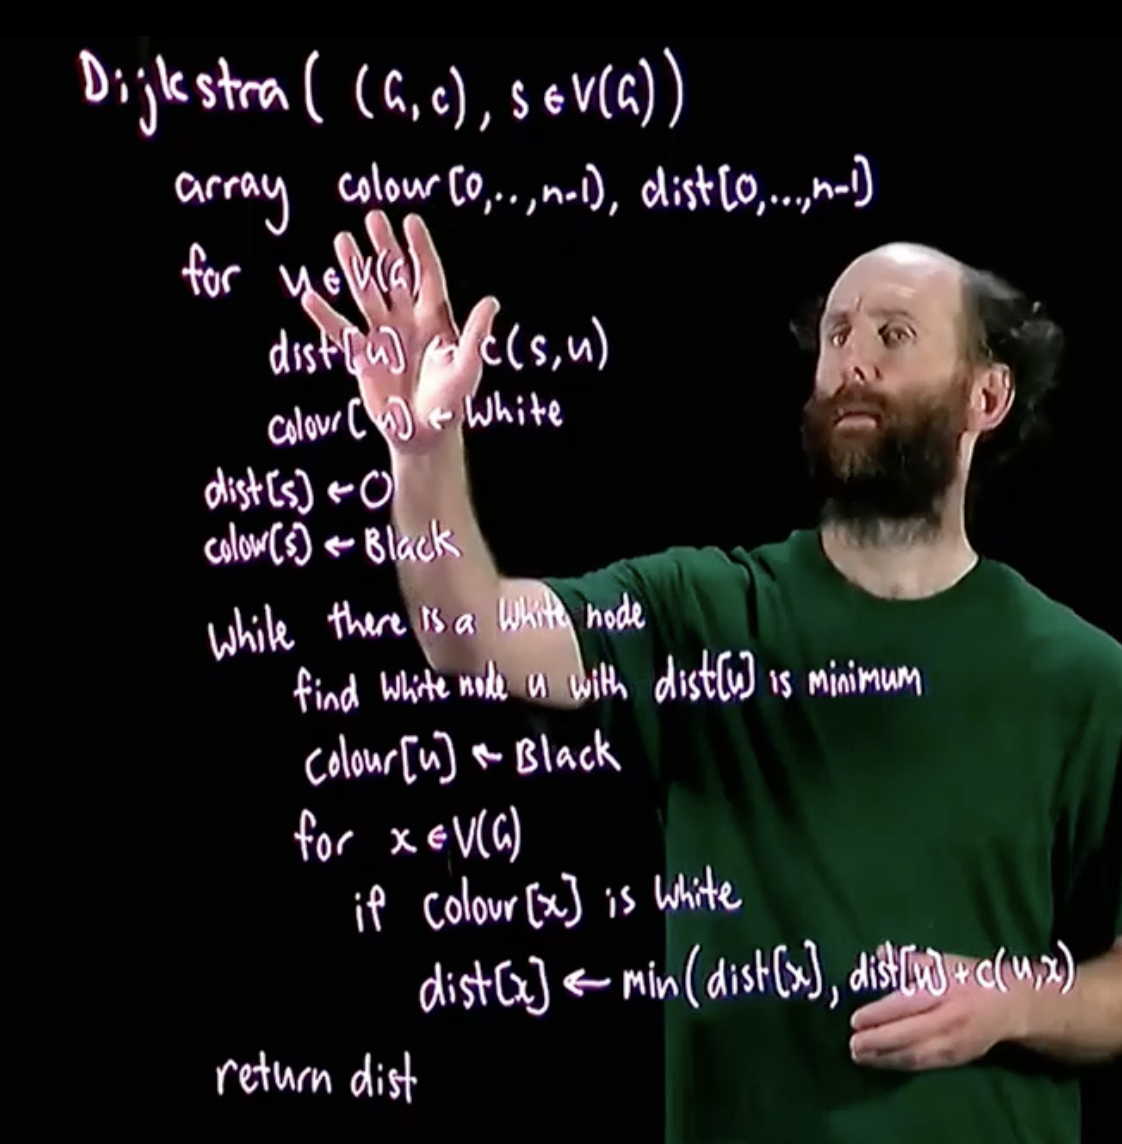 Dijkstra( (G,c), s ∈ V(G))
array colour[0,..,n-1], dist[0,...,n-1]
for u ∈ V(G)
dist[u] ← c(s,u)
colour[u] ← White
dist[s] ← 0
colour[s] ← Black
While there is a White node
find White node u with dist[u] is minimum
Colour[u] ← Black
for x ∈ V(G)
if Colour[x] is White
dist[x] ← min(dist[x], dist[u]+c(u,x)
return dist